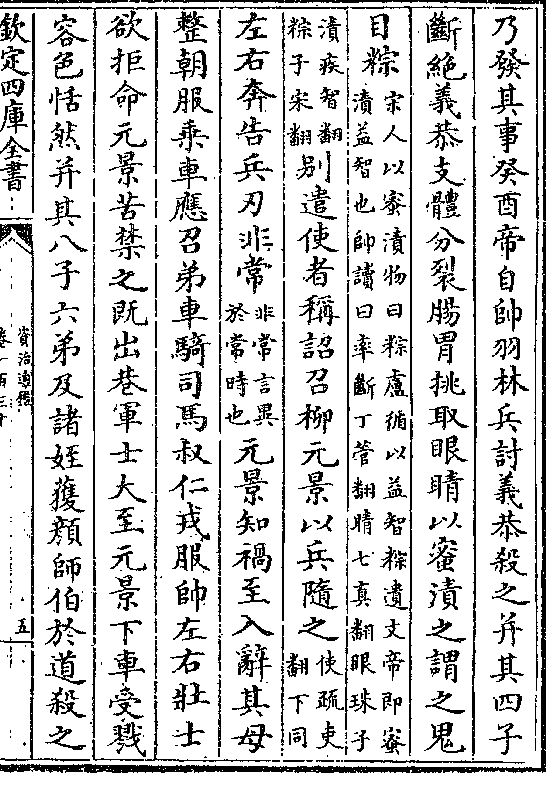 乃發其事癸酉帝自帥羽林兵討義恭殺之并其四子
斷絶義恭支體分裂腸胃挑取眼睛以蜜漬之謂之鬼
目粽宋人以蜜漬物曰粽盧循以益智粽遺文帝即蜜
漬益智也帥讀曰率斷丁管翻睛七真翻眼珠子
漬疾智翻
粽子宋翻别遣使者稱詔召柳元景以兵隨之使疏吏
翻下同
左右奔告兵刃非常非常言異
於常時也元景知禍至入辭其母
整朝服乘車應召弟車騎司馬叔仁戎服帥左右壯士
欲拒命元景苦禁之既出巷軍士大至元景下車受戮
容色恬然并其八子六弟及諸姪獲顔師伯於道殺之
欽定四庫全書
資治通鑑
卷一百三十
五